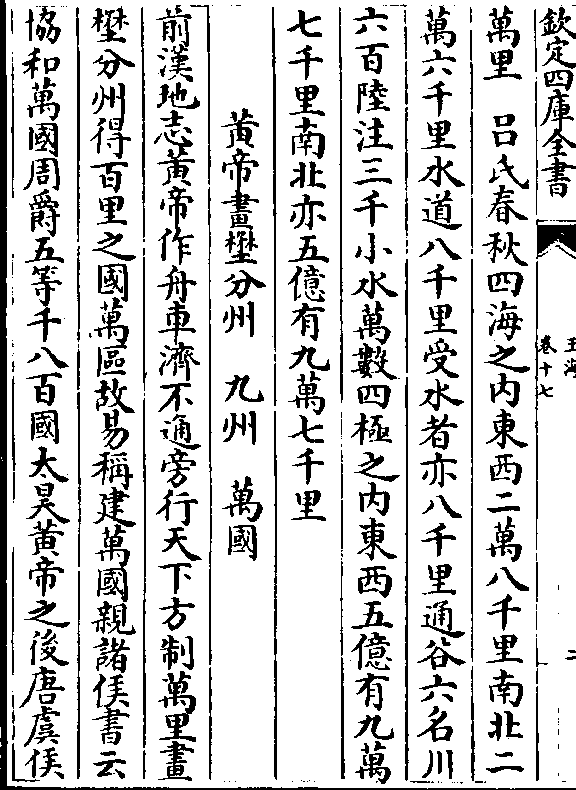 欽定四庫全書
玉海
卷十七
二
萬里　呂氏春秋四海之内東西二萬八千里南北二
萬六千里水道八千里受水者亦八千里通谷六名川
六百陸注三千小水萬數四極之内東西五億有九萬
七千里南北亦五億有九萬七千里
黃帝畫壄分州　九州　萬國
前漢地志黃帝作舟車濟不通旁行天下方制萬里畫
壄分州得百里之國萬區故易稱建萬國親諸侯書云
協和萬國周爵五等千八百國太昊黃帝之後唐虞侯